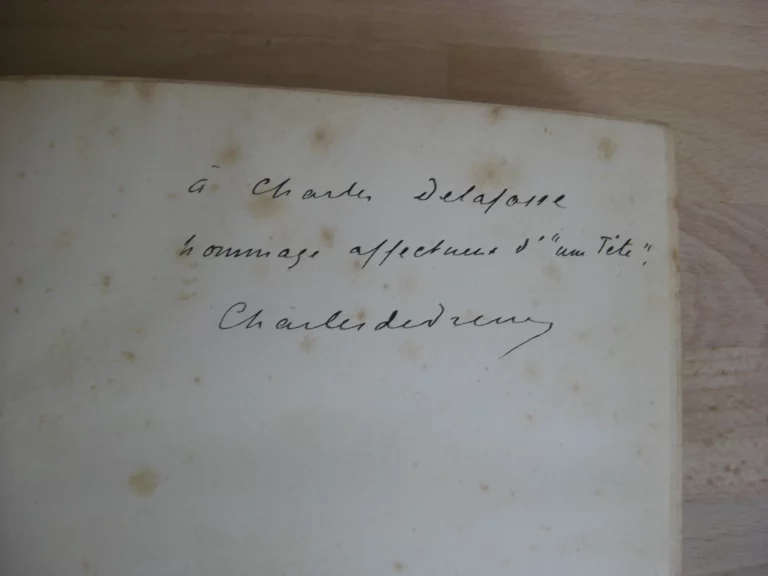 à Charles Delafosse
hommage affectueux d'"une Tête".
Charles de